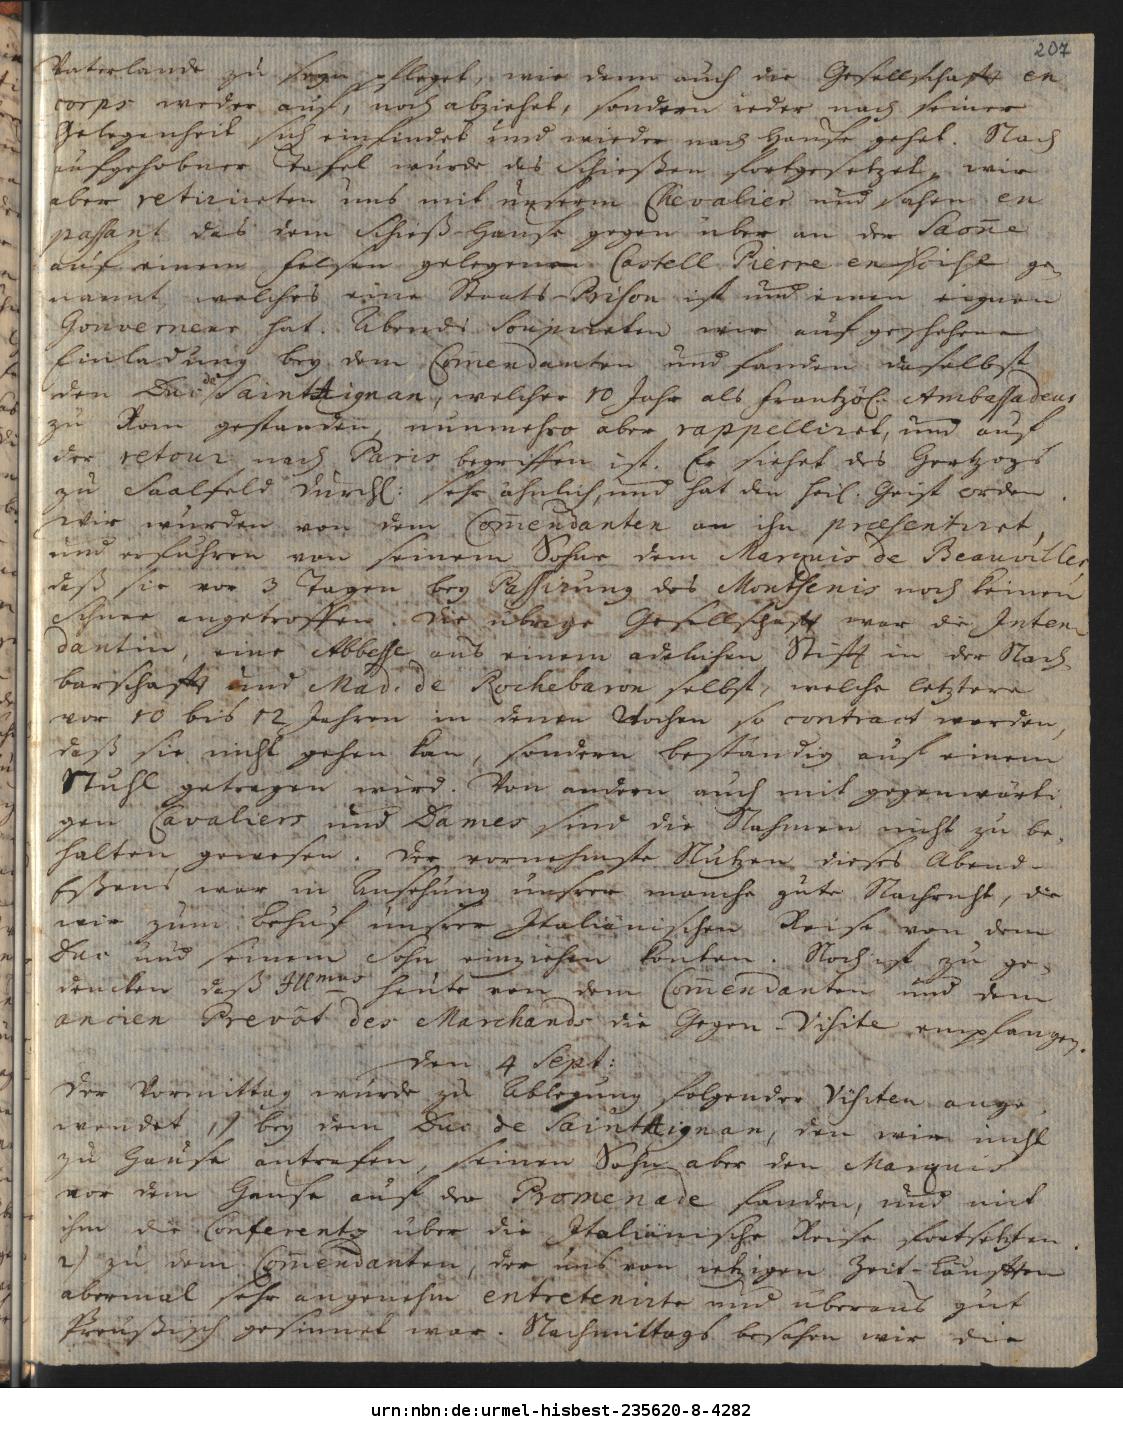 207
Vaterlande zu seyn pfleget, wie denn auch die Gesellschafft en
corps weder auf, noch abziehet, sondern ieder nach seiner
Gelegenheit sich einfindet und wieder nach Hause gehet. Nach
aufgehobner Tafel wurde das Schießen fortgesetzet, wir
aber retirireten uns mit unserm Chevalier und sahen en
passant das dem Schieß-Hause gegen über an der Saone
auf einem Felsen gelegene Castell Pierre en ge-
nannt, welches eine Staats-Prison ist und einen eignen
Gouverneur hat. Abends soupireten wir auf geschehene
Einladung bey dem Com̄endanten und fanden daselbst
den Duc de Saint Aignan, welcher 10 Jahr als Frantzöß. Ambassadeur
zu Rom gestanden, nunmehro aber rappelliret, und auf
der retour nach Paris begriffen ist. Er siehet des Hertzogs
zu Saalfeld Durchl: sehr ähnlich, und hat den heil. Geist orden.
Wir wurden von dem Com̄endanten an ihn præsentiret,
und erfuhren von seinem Sohne dem Marquis de Beauvilier,
daß sie vor 3 Tagen bey Passirung des Montsenis noch keinen
Schnee angetroffen. Die übrige Gesellschafft war die Inten-
dantin, eine Abbesse aus einem adelichen Stifft in der Nach-
barschafft und Mad. de Rochebaron selbst, welche letztere
vor 10 bis 12 Jahren in denen Wochen so contract worden,
daß sie nicht gehen kan, sondern beständig auf einem
Stuhl getragen wird. Von andern auch mit gegenwärti-
gen Cavaliers und Dames sind die Nahmen nicht zu be-
halten gewesen. Der vornehmste Nutzen dieses Abend-
Eßens war in Ansehung unsrer manche gute Nachricht, die
wir zum Behuf unsrer Italiänischen Reise von dem
Duc und seinem Sohn einziehen konten. Noch ist zu ge-
dencken daß Illmus heute von dem Com̄endanten und dem
ancien Prevôt des Marchands die Gegen-Visite empfangen.
den 4 Sept:
Der Vormittag wurde zu Ablegung folgender Visiten ange-
wendet, 1) bey dem Duc de Saint Aignan, den wir nicht
zu Hause antrafen, seinen Sohn aber den Marquis
vor dem Hause auf der Promenade fanden, und mit
ihm die Conferentz über die Italiänische Reise fortsetzten.
2) zu dem Com̄endanten, der uns von ietzigen Zeit-Läufften
abermal sehr angenehm entretenirte und überaus gut
Preußisch gesinnet war. Nachmittags besahen wir die
urn:nbn:de:urmel-hisbest-235620-8-4282